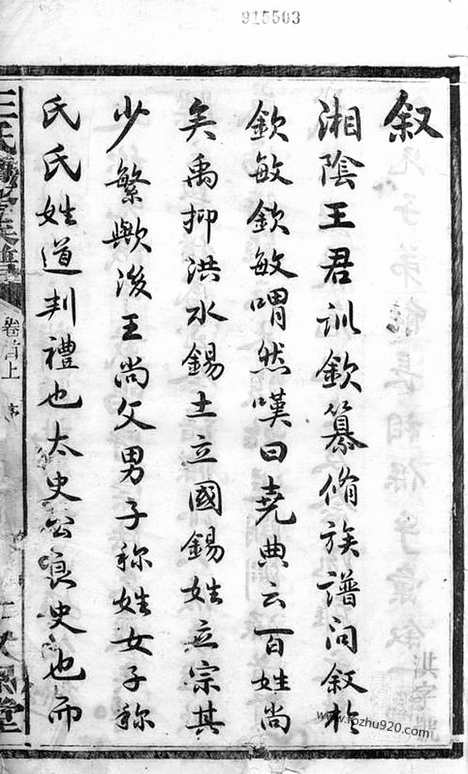 915503
叙
湘陰王君訓欽纂脩族譜问叙於
欽敏欽敏喟然嘆曰堯典云百姓尚
矣禹抑洪水錫土立國錫姓立宗其
少繁欤後王尚父男子称姓女子称
氏氏姓道判禮也太史公良史也而
卷首上
序
洪字號
www.fozhu920.com